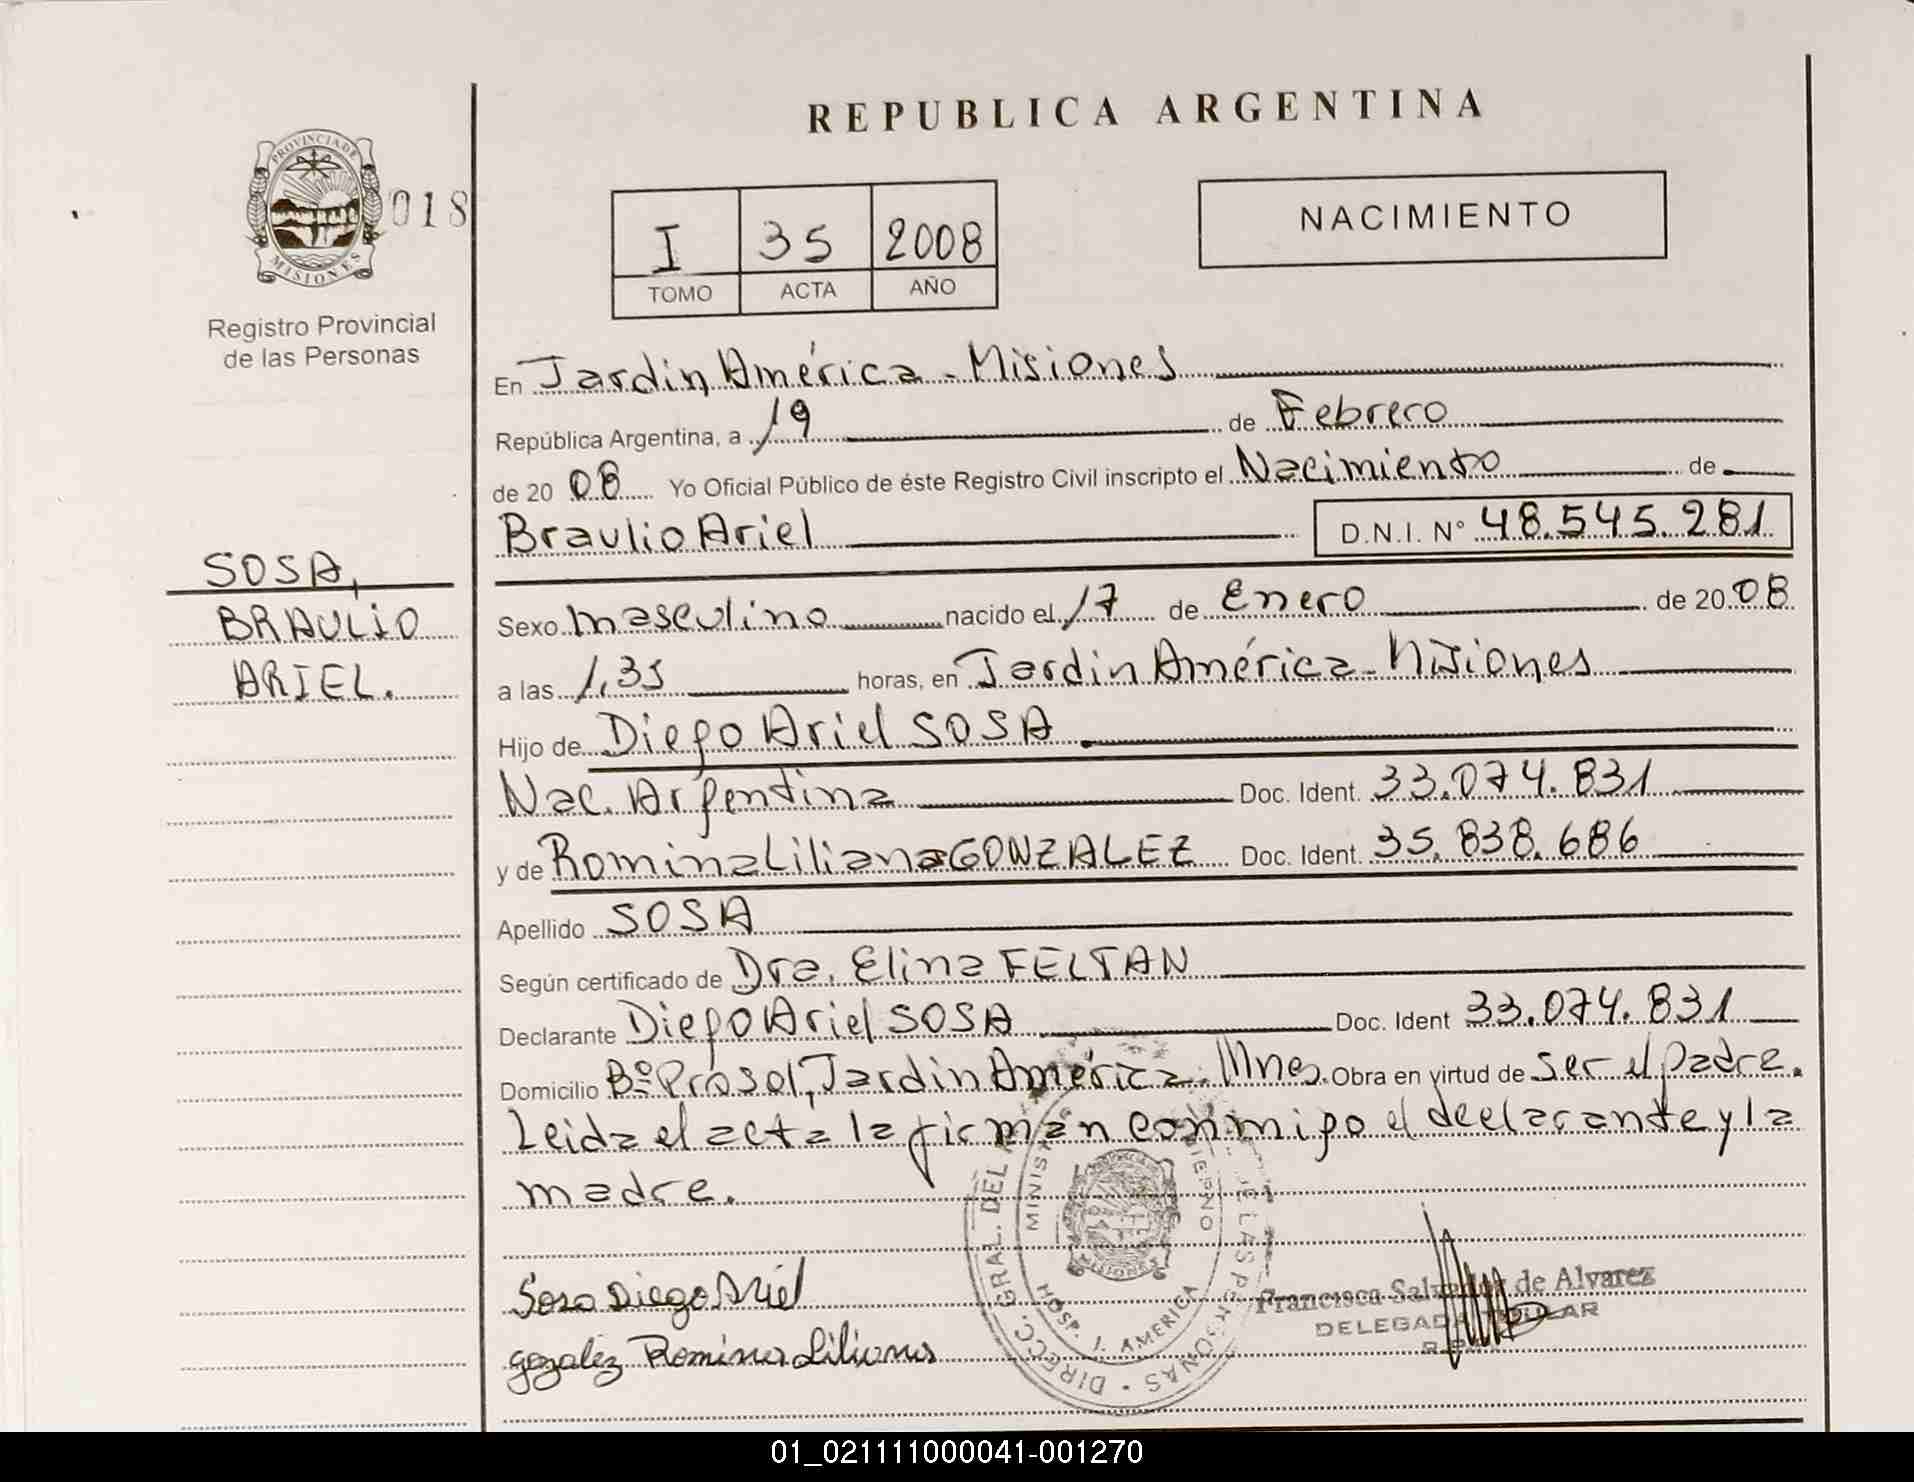 REPUBLICA ARGENTINA
PROVINCIA DE
MISIONES
018
Registro Provincial
de las Personas
I 35 2008
TOMO ACTA AÑO
NACIMIENTO
SOSA,
BRAULIO
ARIEL.
En Jardin América - Misiones
República Argentina, a 19 de Febrero
de 20 08 Yo Oficial Público de éste Registro Civil inscripto el Nacimiento de
Braulio Ariel D.N.I. N° 48.545.281
Sexo masculino nacido el 17 de Enero de 20 08
a las 1,35 horas, en Jardin América - Misiones
Hijo de Diego Ariel SOSA
Nac. Argentina Doc. Ident. 33.074.831
y de Romina Liliana GONZALEZ Doc. Ident. 35.838.686
Apellido SOSA
Según certificado de Dra. Elina FELTAN
Declarante Diego Ariel SOSA Doc. Ident 33.074.831
Domicilio B° Prosol, Jardin América. Mnes. Obra en virtud de ser el padre.
Leida el acta la firman conmigo el declarante y la
madre.
Sosa Diego Ariel
gozalez Romina Liliana
DIRECC. GRAL. DEL
DE LAS PERSONAS
MISIONES
HOSP. J. AMERICA
Francisca Salvador de Alvarez
DELEGADA TITULAR
01_021111000041-001270